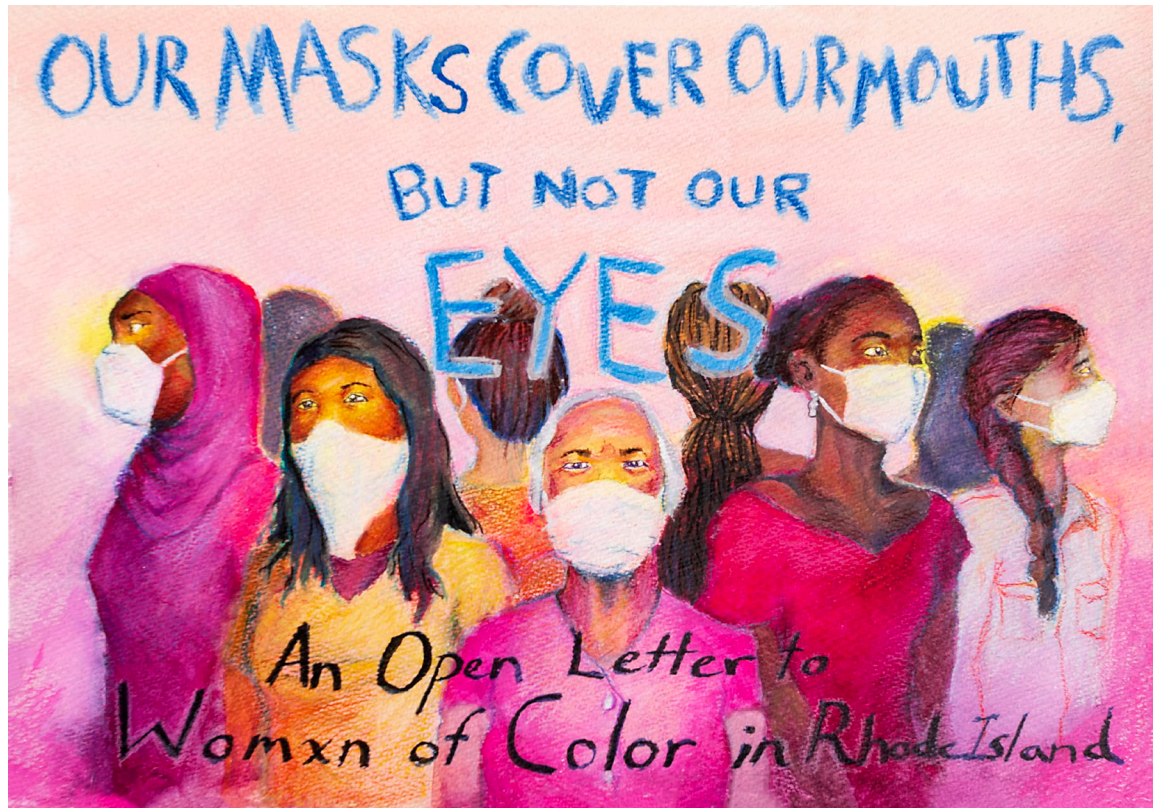 OUR MASKS COVER OUR MOUTHS,
BUT NOT OUR
EYES
An Open Letter to
Womxn of Color in Rhode Island